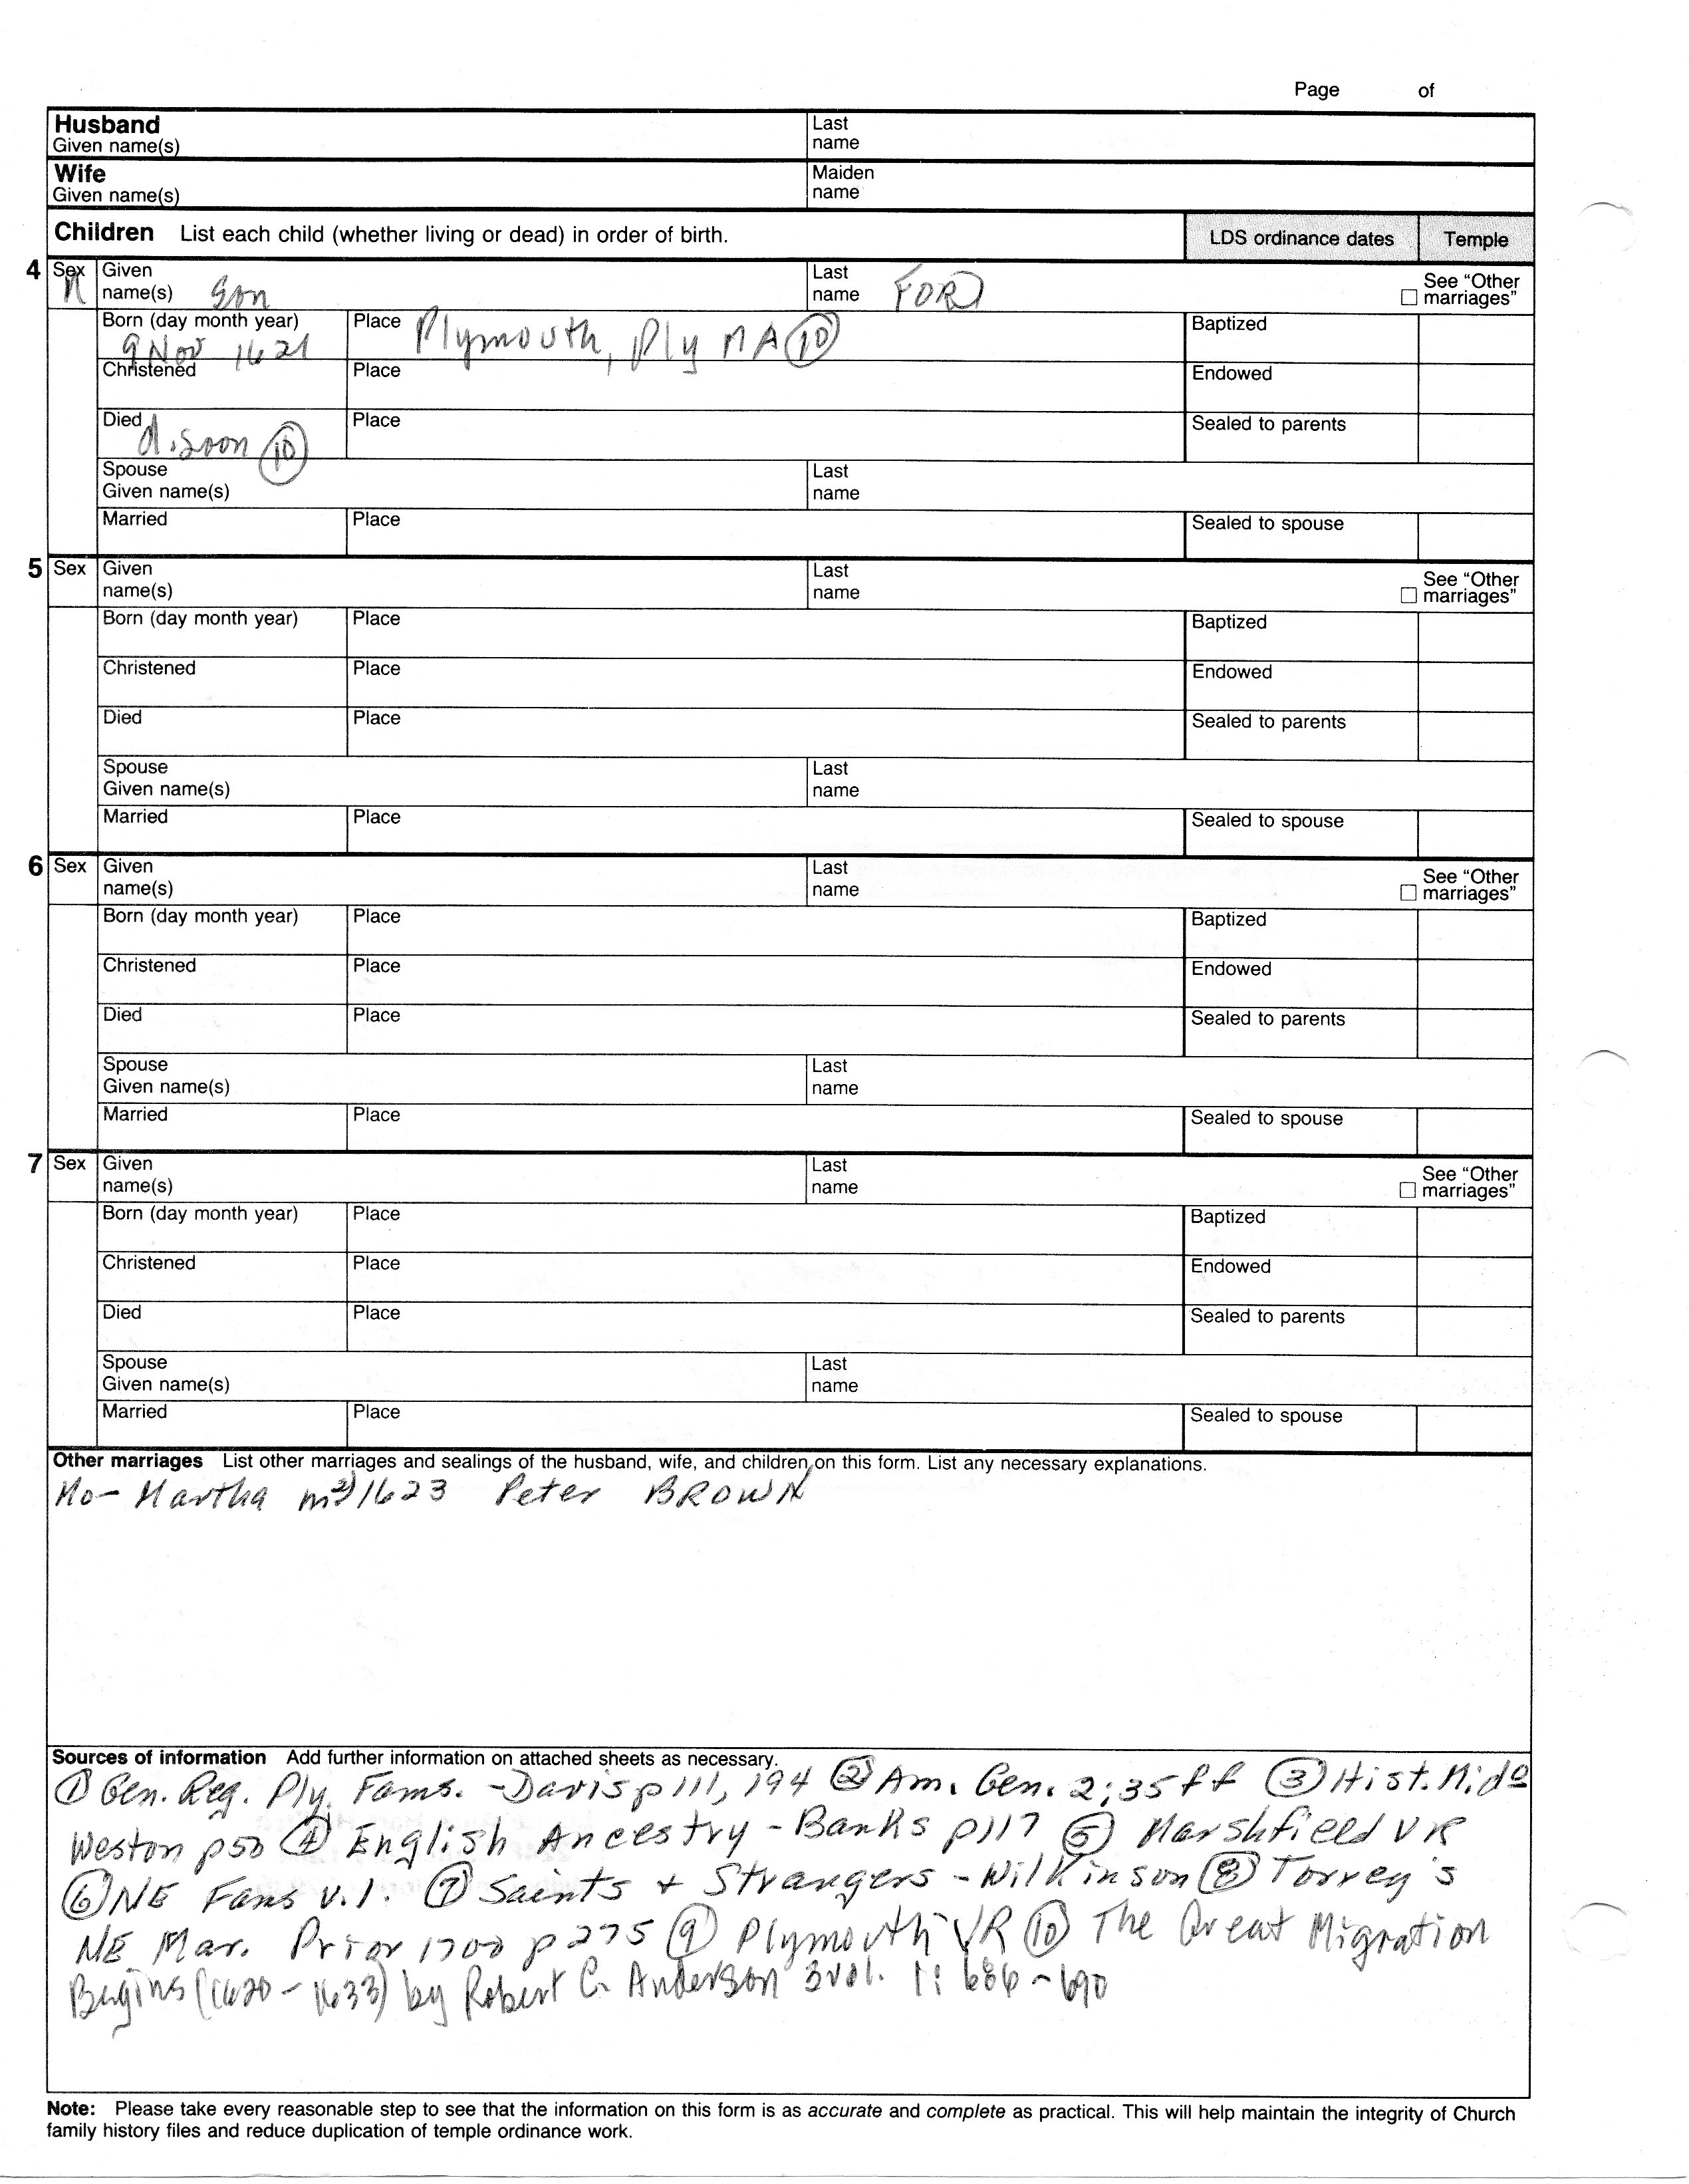 Page of
Husband
Given name(s)
Last
name
Wife
Given name(s)
Maiden
name
Children List each child (whether living or dead) in order of birth.
LDS ordinance dates
Temple
4 Sex M
Given
name(s) Son
Last
name FORD
See “Other
marriages”
Born (day month year) 9 Nov 1621
Place Plymouth, Ply MA (10)
Baptized
Christened
Place
Endowed
Died d. soon (10)
Place
Sealed to parents
Spouse
Given name(s)
Last
name
Married
Place
Sealed to spouse
5 Sex
Given
name(s)
Last
name
See “Other
marriages”
Born (day month year)
Place
Baptized
Christened
Place
Endowed
Died
Place
Sealed to parents
Spouse
Given name(s)
Last
name
Married
Place
Sealed to spouse
6 Sex
Given
name(s)
Last
name
See “Other
marriages”
Born (day month year)
Place
Baptized
Christened
Place
Endowed
Died
Place
Sealed to parents
Spouse
Given name(s)
Last
name
Married
Place
Sealed to spouse
7 Sex
Given
name(s)
Last
name
See “Other
marriages”
Born (day month year)
Place
Baptized
Christened
Place
Endowed
Died
Place
Sealed to parents
Spouse
Given name(s)
Last
name
Married
Place
Sealed to spouse
Other marriages List other marriages and sealings of the husband, wife, and children on this form. List any necessary explanations.
Mo- Martha m 2) 1623 Peter BROWN
Sources of information Add further information on attached sheets as necessary.
(1) Gen. Reg. Ply. Fams. - Davis p 111, 194 (2) Am. Gen. 2:35ff (3) Hist. Mido
Weston p50 (4) English Ancestry - Banks p117 (5) Marshfield VR
(6) NE Fams v.1. (7) Saints + Strangers - Wilkinson (8) Torrey's
NE Mar. Prior 1700 p 275 (9) Plymouth VR (10) The Great Migration
Begins (1620-1633) by Robert C. Anderson 3 vol. 1: 686-690
Note: Please take every reasonable step to see that the information on this form is as accurate and complete as practical. This will help maintain the integrity of Church
family history files and reduce duplication of temple ordinance work.